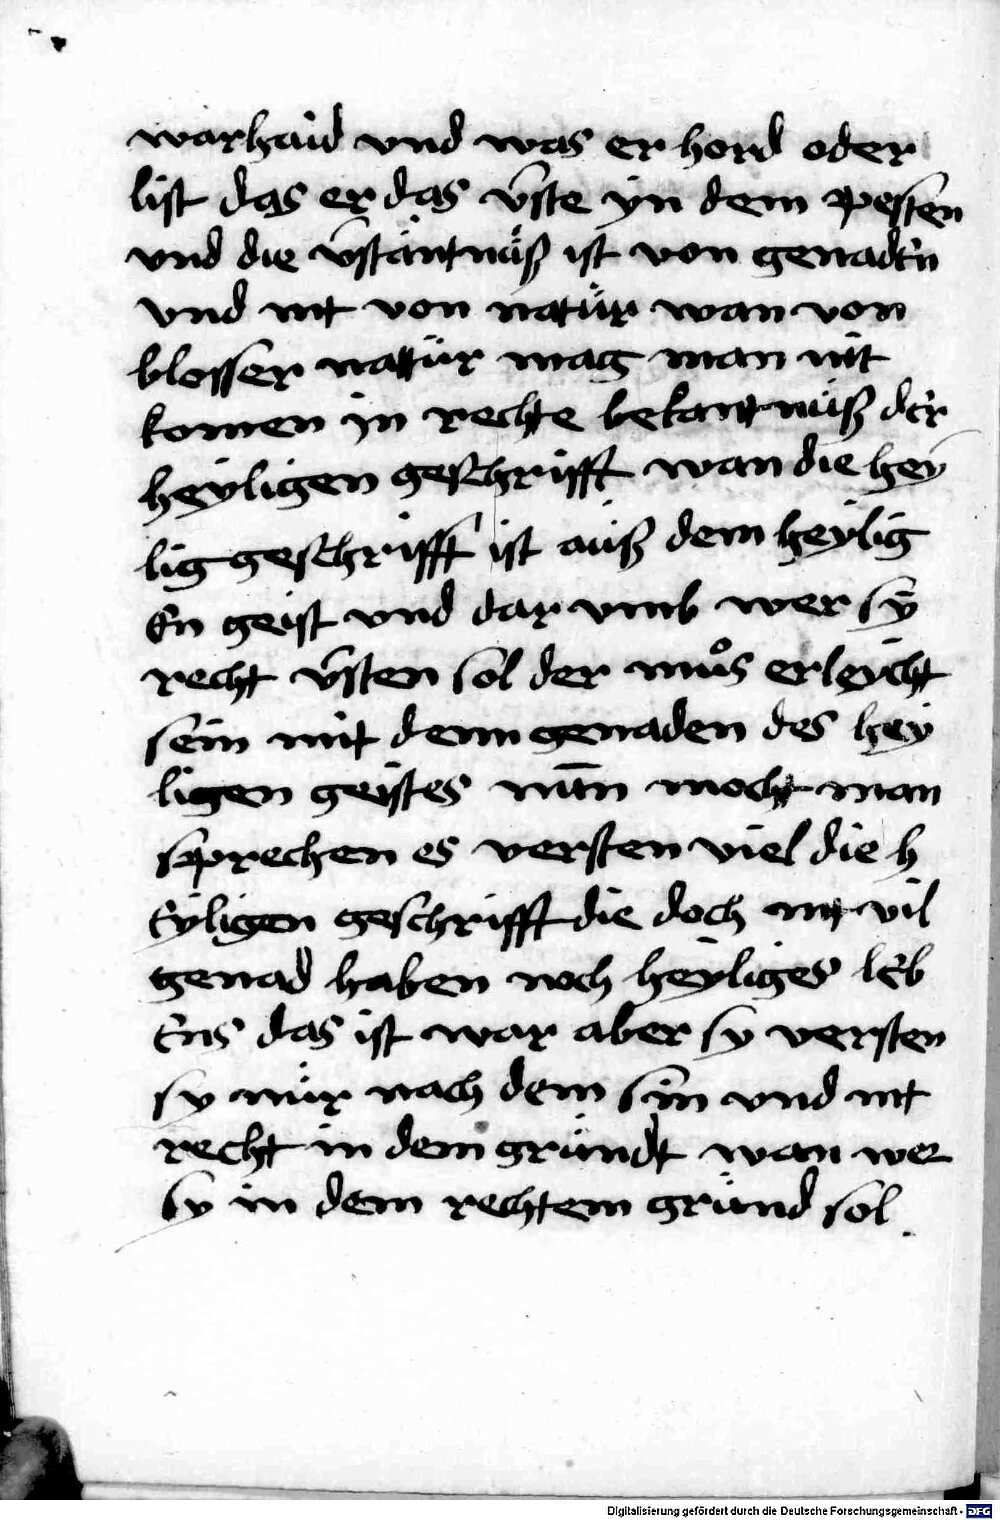 warhaid vnd was er hord oder
list das er das v̄ste yn dem pesten
vnd die v̄stantnüß ist von genaden
vnd nit von natür wan von
blosser natür mag man nit
komen in rechte bekantnüß der
heyligen geschrifft wan die hey
lig geschrifft ist auß dem heylig
en geist vnd dar vmb wer sy
recht v̄sten sol der můs erleycht
sein mit dem genaden des hey
ligen geistes nun mocht man
sprechen es versten viel die h
eyligen geschrifft die doch nit vil
genad haben noch heyliges leb
ens das ist war aber sy versten
sy nür nach dem sin vnd nit
recht in dem gründt wan wer
sy in dem rechtem gründ sol
Digitalisierung gefördert durch die Deutsche Forschungsgemeinschaft - DFG